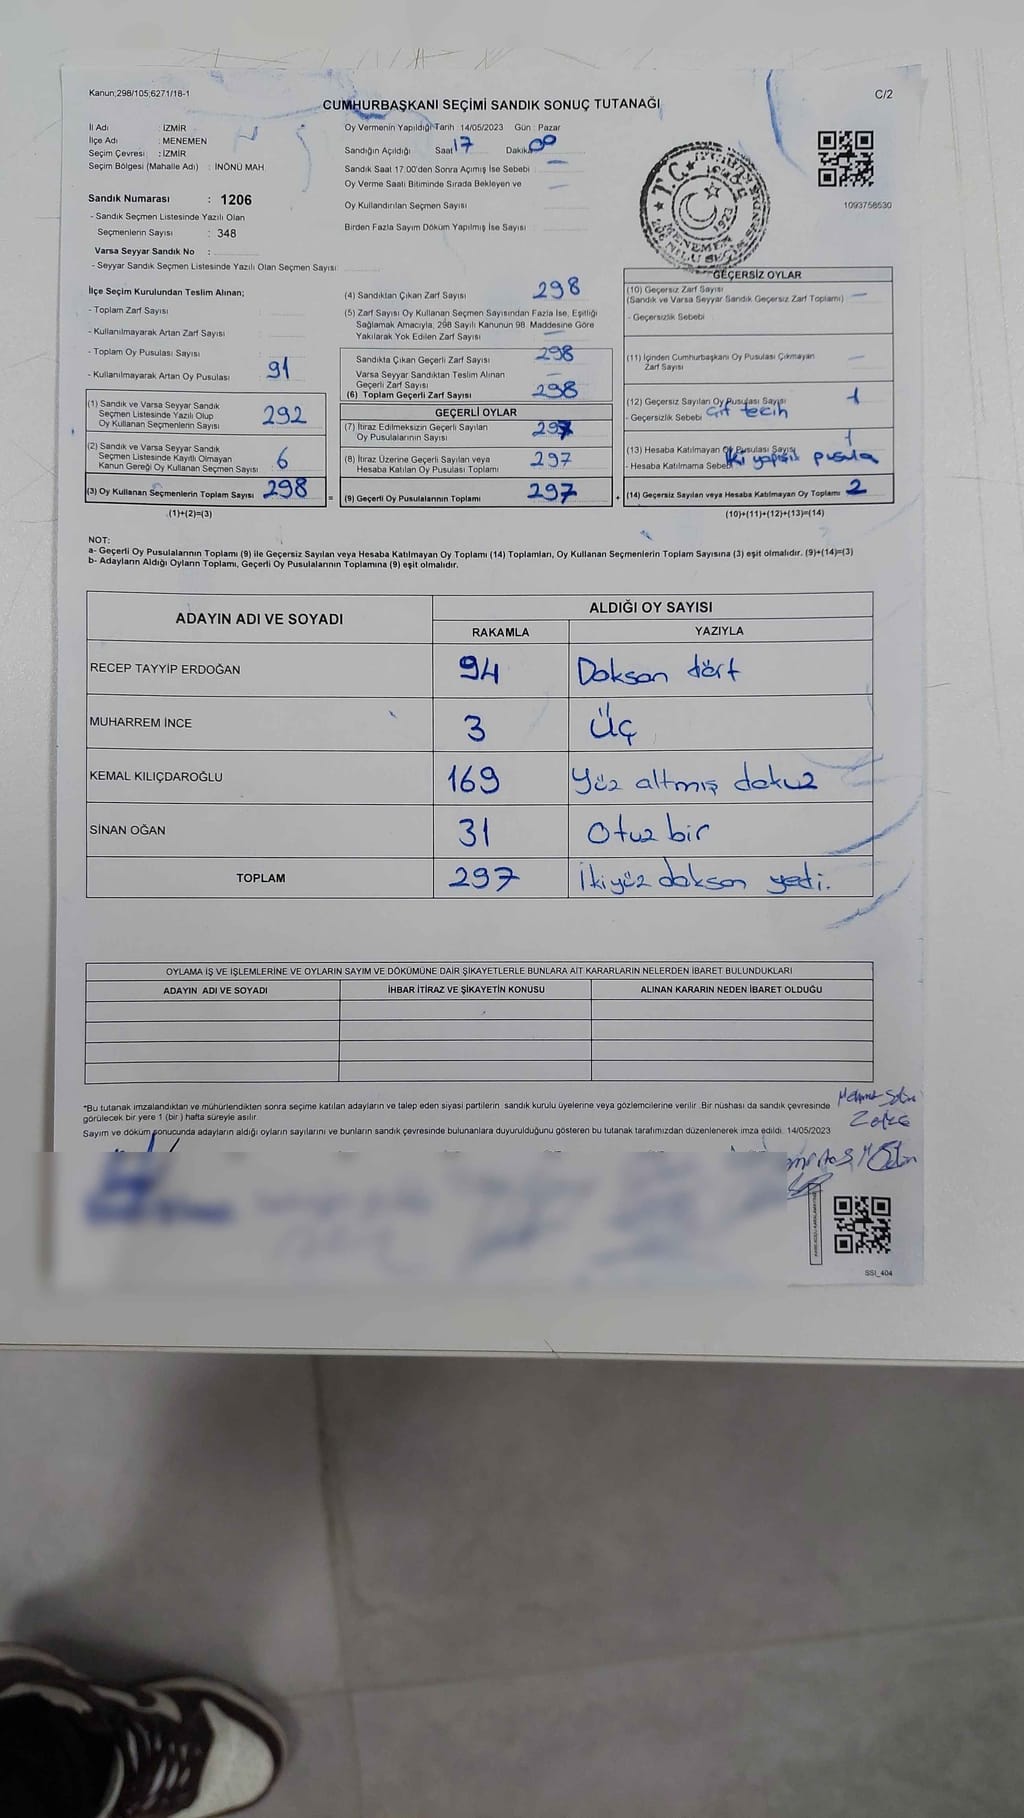 Kanun;298/105;6271/18-1
CUMHURBAŞKANI SEÇİMİ SANDIK SONUÇ TUTANAĞI
C/2
İl Adı : İZMİR
İlçe Adı : MENEMEN
Seçim Çevresi : İZMİR
Seçim Bölgesi (Mahalle Adı) : İNÖNÜ MAH
Sandık Numarası : 1206
- Sandık Seçmen Listesinde Yazılı Olan
Seçmenlerin Sayısı : 348
Varsa Seyyar Sandık No :
- Seyyar Sandık Seçmen Listesinde Yazılı Olan Seçmen Sayısı:
Oy Vermenin Yapıldığı Tarih : 14/05/2023 Gün : Pazar
Sandığın Açıldığı Saat 17 Dakika 00
Sandık Saat 17.00'den Sonra Açımış İse Sebebi : —
Oy Verme Saati Bitiminde Sırada Bekleyen ve —
Oy Kullandırılan Seçmen Sayısı
Birden Fazla Sayım Döküm Yapılmış İse Sayısı :
1093758530
T.C.
MENEMEN
1923
İlçe Seçim Kurulundan Teslim Alınan;
- Toplam Zarf Sayısı :
- Kullanılmayarak Artan Zarf Sayısı :
- Toplam Oy Pusulası Sayısı :
- Kullanılmayarak Artan Oy Pusulası : 91
(1) Sandık ve Varsa Seyyar Sandık
Seçmen Listesinde Yazılı Olup
Oy Kullanan Seçmenlerin Sayısı : 292
(2) Sandık ve Varsa Seyyar Sandık
Seçmen Listesinde Kayıtlı Olmayan
Kanun Gereği Oy Kullanan Seçmen Sayısı : 6
(3) Oy Kullanan Seçmenlerin Toplam Sayısı : 298
(1)+(2)=(3)
(4) Sandıktan Çıkan Zarf Sayısı 298
(5) Zarf Sayısı Oy Kullanan Seçmen Sayısından Fazla İse, Eşitliği
Sağlamak Amacıyla, 298 Sayılı Kanunun 98. Maddesine Göre
Yakılarak Yok Edilen Zarf Sayısı —
Sandıkta Çıkan Geçerli Zarf Sayısı 298
Varsa Seyyar Sandıktan Teslim Alınan
Geçerli Zarf Sayısı —
(6) Toplam Geçerli Zarf Sayısı 298
GEÇERLİ OYLAR
(7) İtiraz Edilmeksizin Geçerli Sayılan
Oy Pusulalarının Sayısı 297
(8) İtiraz Üzerine Geçerli Sayılan veya
Hesaba Katılan Oy Pusulası Toplamı 297
= (9) Geçerli Oy Pusulalarının Toplamı 297 +
GEÇERSİZ OYLAR
(10) Geçersiz Zarf Sayısı
(Sandık ve Varsa Seyyar Sandık Geçersiz Zarf Toplamı) —
- Geçersizlik Sebebi
(11) İçinden Cumhurbaşkanı Oy Pusulası Çıkmayan
Zarf Sayısı —
(12) Geçersiz Sayılan Oy Pusulası Sayısı 1
- Geçersizlik Sebebi Çift tecih
(13) Hesaba Katılmayan Oy Pusulası Sayısı 1
- Hesaba Katılmama Sebebi İki yapışık pusula
(14) Geçersiz Sayılan veya Hesaba Katılmayan Oy Toplamı 2
(10)+(11)+(12)+(13)=(14)
NOT:
a- Geçerli Oy Pusulalarının Toplamı (9) ile Geçersiz Sayılan veya Hesaba Katılmayan Oy Toplamı (14) Toplamları, Oy Kullanan Seçmenlerin Toplam Sayısına (3) eşit olmalıdır. (9)+(14)=(3)
b- Adayların Aldığı Oyların Toplamı, Geçerli Oy Pusulalarının Toplamına (9) eşit olmalıdır.
ADAYIN ADI VE SOYADI ALDIĞI OY SAYISI
RAKAMLA YAZIYLA
RECEP TAYYİP ERDOĞAN 94 Doksan dört
MUHARREM İNCE 3 Üç
KEMAL KILIÇDAROĞLU 169 Yüz altmış dokuz
SİNAN OĞAN 31 Otuz bir
TOPLAM 297 İkiyüz doksan yedi.
OYLAMA İŞ VE İŞLEMLERİNE VE OYLARIN SAYIM VE DÖKÜMÜNE DAİR ŞİKAYETLERLE BUNLARA AİT KARARLARIN NELERDEN İBARET BULUNDUKLARI
ADAYIN ADI VE SOYADI İHBAR İTİRAZ VE ŞİKAYETİN KONUSU ALINAN KARARIN NEDEN İBARET OLDUĞU
*Bu tutanak imzalandıktan ve mühürlendikten sonra seçime katılan adayların ve talep eden siyasi partilerin sandık kurulu üyelerine veya gözlemcilerine verilir. Bir nüshası da sandık çevresinde
görülecek bir yere 1 (bir ) hafta süreyle asılır.
Sayım ve döküm sonucunda adayların aldığı oyların sayılarını ve bunların sandık çevresinde bulunanlara duyurulduğunu gösteren bu tutanak tarafımızdan düzenlenerek imza edildi. 14/05/2023
SSI_404